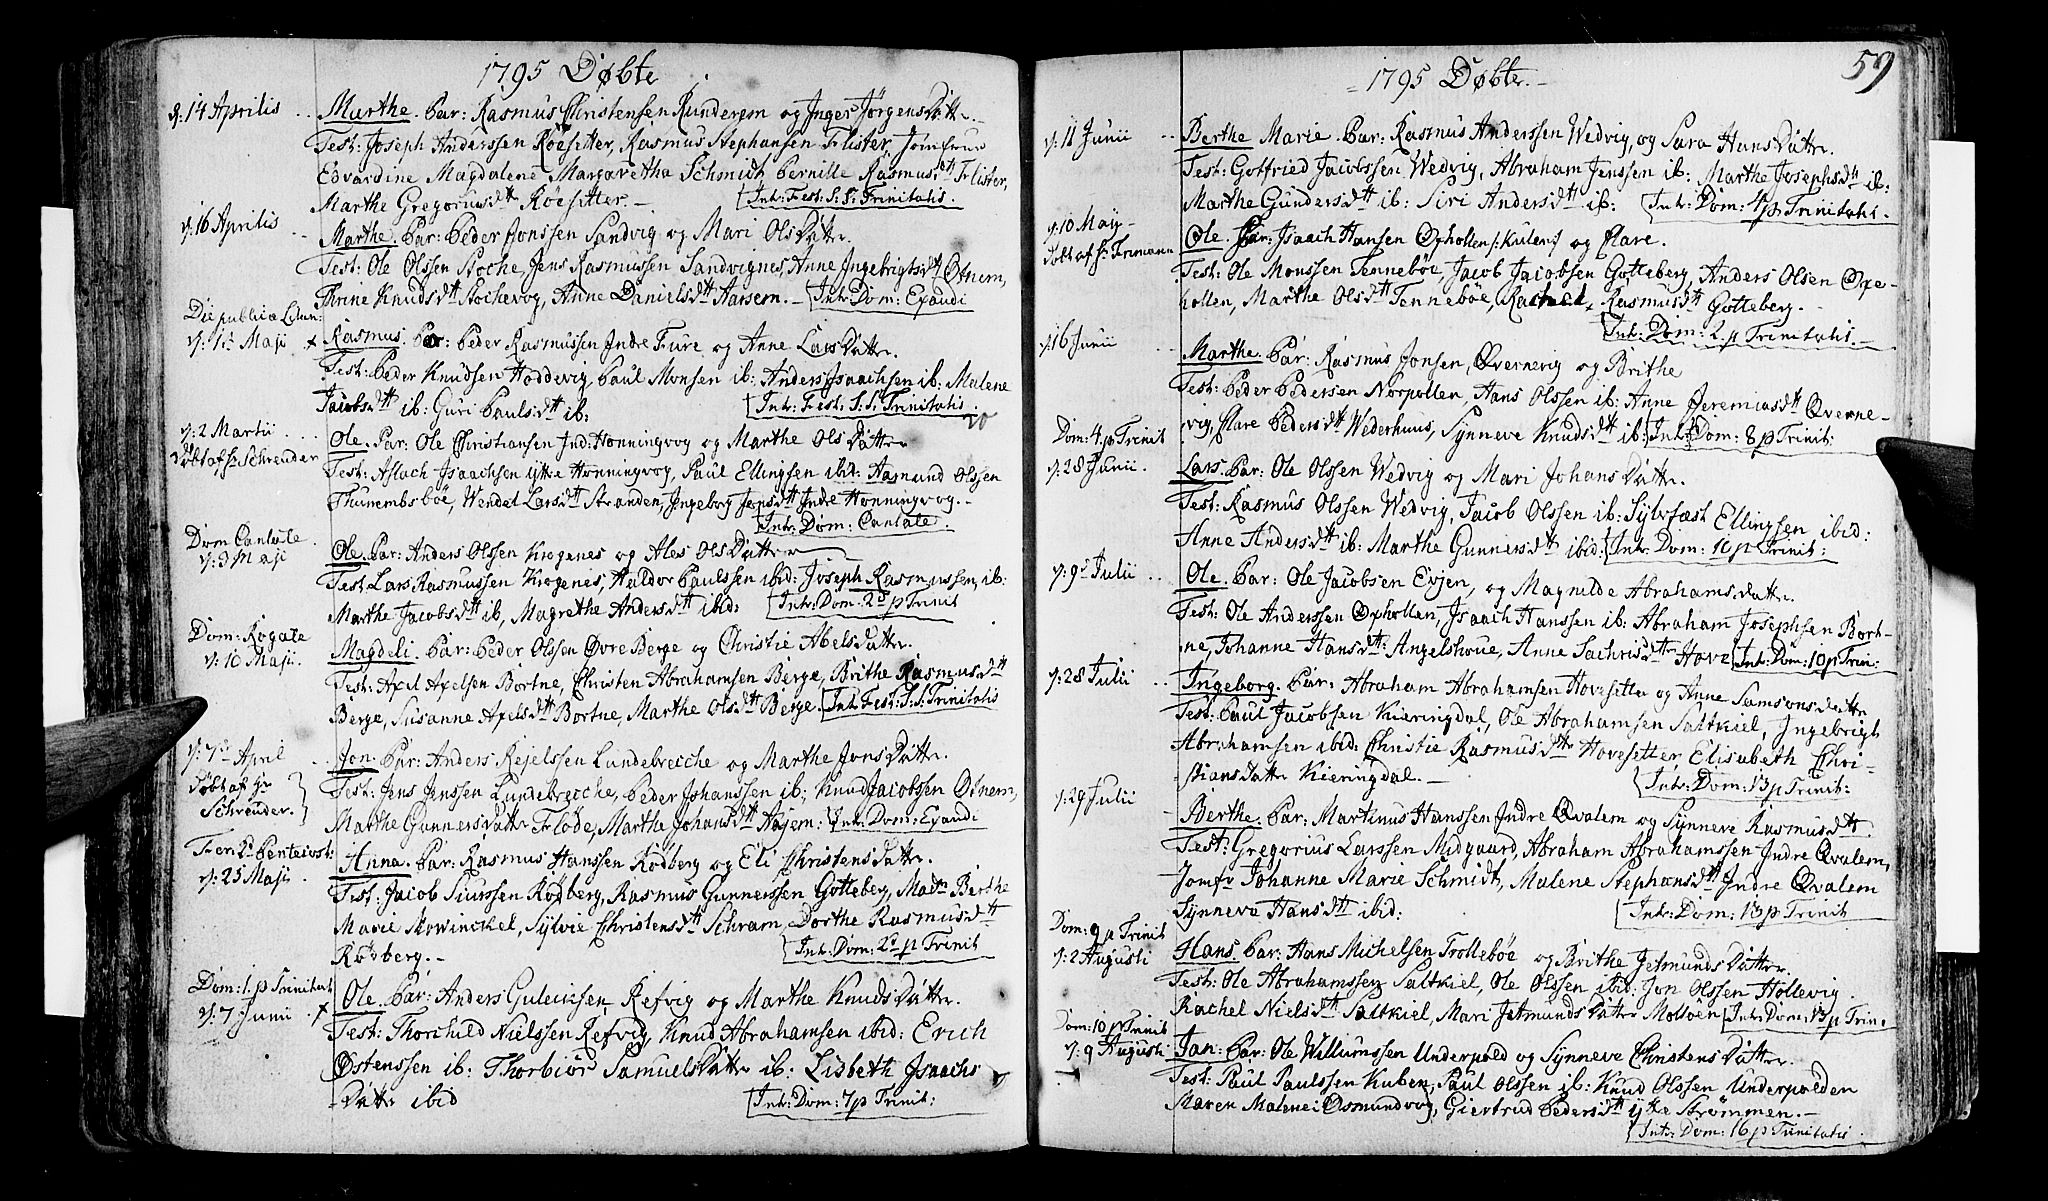 1795 Døbte
d: 14 Aprilis
Marthe. Par: Rasmus Christensen Runderem og Inger Jörgens Dattr.
Test: Joseph Anderssen Röesetter, Rasmus Stephansen Flister, Jomfrue
Edvardine Magdalene Margaretha Schmidt, Pernille Rasmusdtt Flister,
Marthe Gregoriusdtt Röesetter. Intr: Fest: S. S: Trinitatis.
d: 16 Aprilis
Marthe. Par: Peder Jonssen Sandvig og Mari Ols Dattr.
Test: Ole Olssen Stoche, Jens Rasmussen Sandvignes, Anne Ingebrigtsdtt Otnem,
Thrine Knudsdtt Stochevog, Anne Danielsdtt Aarsem. Intr: Dom: Exaudi
Die publicæ
d: 1ste Maji
Rasmus. Par: Peder Rasmussen Indre Fure og Anne Lars Dattr.
Test: Peder Knudsen Hoddevig, Paul Monsen ib: Anders Isaachsen ib: Malene
Jacobsdtt ib: Guri Paulsdtt ib: Intr: Fest: S. S: Trinitatis.
d: 2 Martii
Döbt af hr Schreuder
Ole. Par: Ole Christiansen Ind: Honningvog og Marthe Ols Dattr
Test: Aslach Isaachsen ytre Honningvog, Paul Ellingsen ibid: Aasmund Olssen
Thunembsböe, Wendel Larsdtt Stranden, Ingeborg Jensdtt Indre Honningvog.
Intr: Dom: Cantate.
Dom Cantate
d: 3 Maji
Ole. Par: Anders Olssen Krogenes og Ales Ols Dattr
Test: Lars Rasmussen Krogenes, Haldor Paulssen ibid: Joseph Rasmussen, ib:
Marthe Jacobsdtt ib, Magrethe Andersdtt ibid: Intr: Dom: 2d p Trinit
Dom: Rogate
d: 10 Maji
Magdeli. Par: Peder Olssen Övre Berge og Christie Abels Dattr.
Test: Axel Axelsen Bortne, Christen Abrahamsen Berge, Brithe Rasmusdtt
Berge, Susanne Axelsdtt Bortne, Marthe Olsdtt Berge. Intr: Fest: S. S: Trinitatis
d: 7de April
Döbt af hr
Schreuder.
Jon. Par: Anders Rejelssen Lundebrecche og Marthe Jons Dattr.
Test: Jens Jenssen Lundebrecche, Peder Johanssen ib: Knud Jacobsen Otnem,
Marthe Gunners Dattr Flöde, Marthe Johansdtt Hajem: Intr: Dom: Exaudi
Fer: 2d Pentecost:
d: 25 Maji
Anna. Par: Rasmus Hanssen Rödberg og Eli Christens Dattr.
Test: Jacob Siurssen Rödberg, Rasmus Gunnerssen Gotteberg, Madm Berthe
Marie Skowinckel, Sylvie Christensdtt Schram, Dorthe Rasmusdtt
Rödberg. Intr: Dom: 2d p Trinit
Dom: 1. p Trinitat
d: 7 Junii
Ole. Par: Anders Guleiksen Refvig og Marthe Knuds Dattr.
Test: Thorchild Nielssen Refvig, Knud Abrahamsen ibid: Erich
Östenssen ib: Thorbiör Samuels Dattr ib: Lisbeth Isaachs
Dattr ibid Intr: Dom: 7 p Trinit:
59
1795 Døbte.
d: 11 Junii
Berthe Marie. Par: Rasmus Anderssen Wedvig, og Sara Hans Dattr.
Test: Gotfried Jacobssen Wedvig, Abraham Jenssen ib: Marthe Josephsdtt ib:
Marthe Gundersdtt ib: Siri Andersdtt ib: Intr: Dom: 4 p Trinitatis.
d: 10 May
Döbt af hr Frimann
Ole. Par: Isaach Hansen Ophollen og Clare.
Test: Ole Monssen Tenneböe, Jacob Jacobsen Gotteberg, Anders Olsen Ope-
hollen, Marthe Olsdtt Tenneböe, Rachel Rasmusdtt Gotteberg.
Intr: Dom: 2. p Trinitatis.
d: 16 Junii
Marthe. Par: Rasmus Jonsen Qvernevig og Brithe
Test: Peder Pedersen Norpollen, Hans Olssen ib: Anne Jeremiasdtt Qverne-
vig, Clare Pedersdtt Wederhuus, Synneve Knudsdtt ib: Intr: Dom: 8 p Trinit:
Dom: 4 p Trinit
d: 28 Junii.
Lars. Par: Ole Olssen Wedvig og Mari Johans Dattr.
Test: Rasmus Olssen Wedvig, Jacob Olssen ib: Sylvfæst Ellingsen ibid:
Anne Andersdtt ib: Marthe Gunnersdtt ibid: Intr: Dom: 10 p Trinit:
d: 9de Julii
Ole. Par: Ole Jacobsen Evjen, og Magnilde Abrahams Dattr.
Test: Ole Anderssen Ophollen, Isaach Hanssen ib: Abraham Josephsen Bort-
ne, Johanne Hansdtt: Angelshoue, Anne Sachrisdttr Hove Intr: Dom: 10 p Trin:
d: 28 Julii
Ingeborg. Par: Abraham Abrahamsen Hovesetter og Anne Samsons Dattr
Test: Paul Jacobsen Kieringdal, Ole Abrahamsen Saltkiel, Ingebrigt
Abrahamsen ibid: Christie Rasmusdtt Hovesetter, Elisabeth Chri-
stians Dattr Kieringdal. Intr: Dom: 13 p Trinit:
d: 29 Julii
Berthe. Par: Martinus Hanssen Indre Qvalem og Synneve Rasmusdtt.
Test: Gregorius Larssen Midgaard, Abraham Abrahamssen Indre Qvalem,
Jomfr Johanne Marie Schmidt, Malene Stephansdtt Indre Qvalem
Synneva Hansdtt ibid: Intr: Dom: 13 p Trinit
Dom: 9 p Trinit
d: 2 Augusti
Hans. Par: Hans Michelsen Trolleböe og Brithe Jetmunds Dattr.
Test: Ole Abrahamssen Saltkiel, Ole Olssen ibid: Jon Olssen Hollevig.
Rachel Nielsdtt Saltkiel, Mari Jetmunds Dattr Moltöen Intr: Dom: 13 p Trin:
Dom: 10 p Trinit
d: 9 Augusti
Jan. Par: Ole Willumssen Underpold og Synneve Christens Dattr.
Test: Paul Paulssen Kuben, Paul Olssen ib: Knud Olssen Underpolden
Maren Malene Osmundvog, Giertrud Pedersdtt ytre Strömmen.
Intr: Dom: 16 p Trinitatis